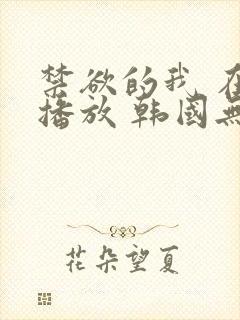 禁欲的我
播放 韩國無
花朵望夏